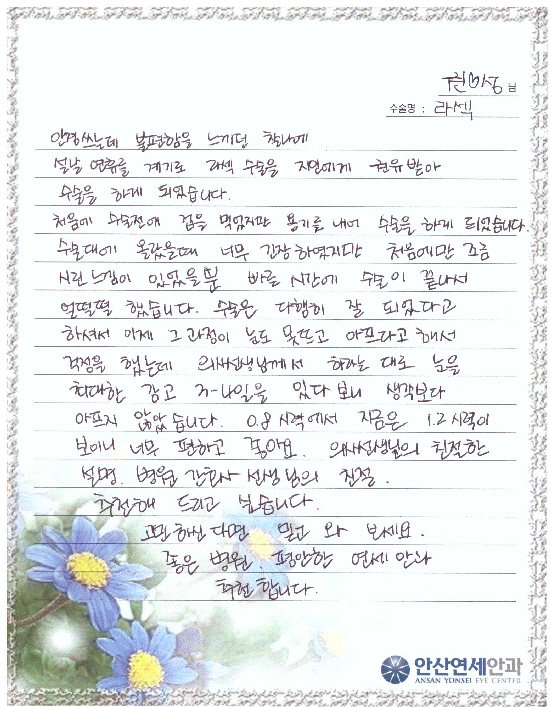 권♡성 님
수술명 : 라섹
안경쓰는데 불편함을 느끼던 찰나에
설날 연휴를 계기로 라섹 수술을 지인에게 권유받아
수술을 하게 되었습니다.
처음에 수술전에 겁을 먹었지만 용기를 내어 수술을 하게 되었습니다.
수술대에 올랐을때 너무 긴장하였지만 처음에만 조금
시린 느낌이 있었을뿐 빠른 시간에 수술이 끝나서
얼떨떨 했습니다. 수술은 다행히 잘 되었다고
하셔서 이제 그 과정이 눈도 못뜨고 아프다고 해서
걱정을 했는데 의사선생님께서 하라는 대로 눈을
최대한 감고 3~4일을 있다 보니 생각보다
아프지 않았습니다. 0.8 시력에서 지금은 1.2 시력이
보이니 너무 편하고 좋아요. 의사선생님의 친절한
설명. 병원 간호사 선생님의 친절.
추천해 드리고 싶습니다.
고민하신다면 믿고 와 보세요.
좋은 병원. 편안한 연세안과
추천합니다.
안산연세안과
ANSAN YONSEI EYE CENTER